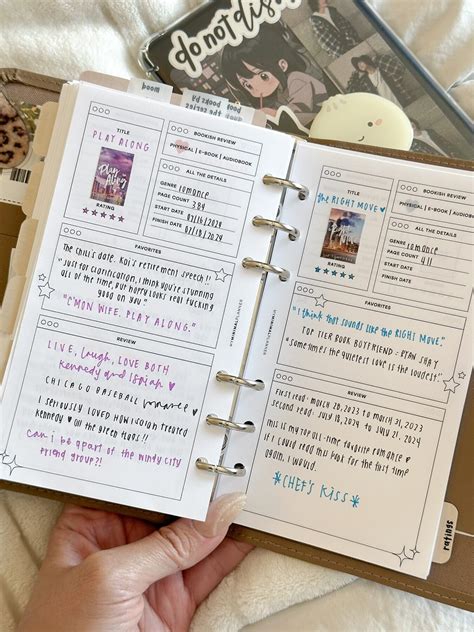 do not dis
TITLE
PLAY ALONG
Play
Along
RATING
BOOKISH REVIEW
PHYSICAL | E-BOOK | AUDIOBOOK
ALL THE DETAILS
GENRE romance
PAGE COUNT 384
START DATE 07/16/2024
FINISH DATE 07/18/2024
FAVORITES
The Chili's date. Kai's retirement speech!!
"Just for clarification, I think you're stunning
all of the time, but
good on you."
"C'MON WIFE, PLAY ALONG."
REVIEW
LIVE, laugh, LOVE BOTH
Kennedy and Isaiah
CHICAGO BASEBALL romance
I seriously loved how Isaiah treated
Kennedy all the green flags!!
Can I be apart of the windy city
friend group?!
MY MINIMAL PLANNER
TITLE
the RIGHT MOVE
RATING
BOOKISH REVIEW
PHYSICAL | E-BOOK | AUDIOBOOK
ALL THE DETAILS
GENRE romance
PAGE COUNT 411
START DATE
FINISH DATE
FAVORITES
"I think that sounds like the RIGHT MOVE."
TOP TIER BOOK BOYFRIEND: RYAN SHAY
"sometimes the quietest love is the loudest."
REVIEW
First read: March 28, 2023 to March 31, 2023
second read: July 18, 2024 to July 21, 2024
this is my top all-time favorite romance
if I could read this book for the first time
again, I would.
*CHEF'S KISS*
ratings